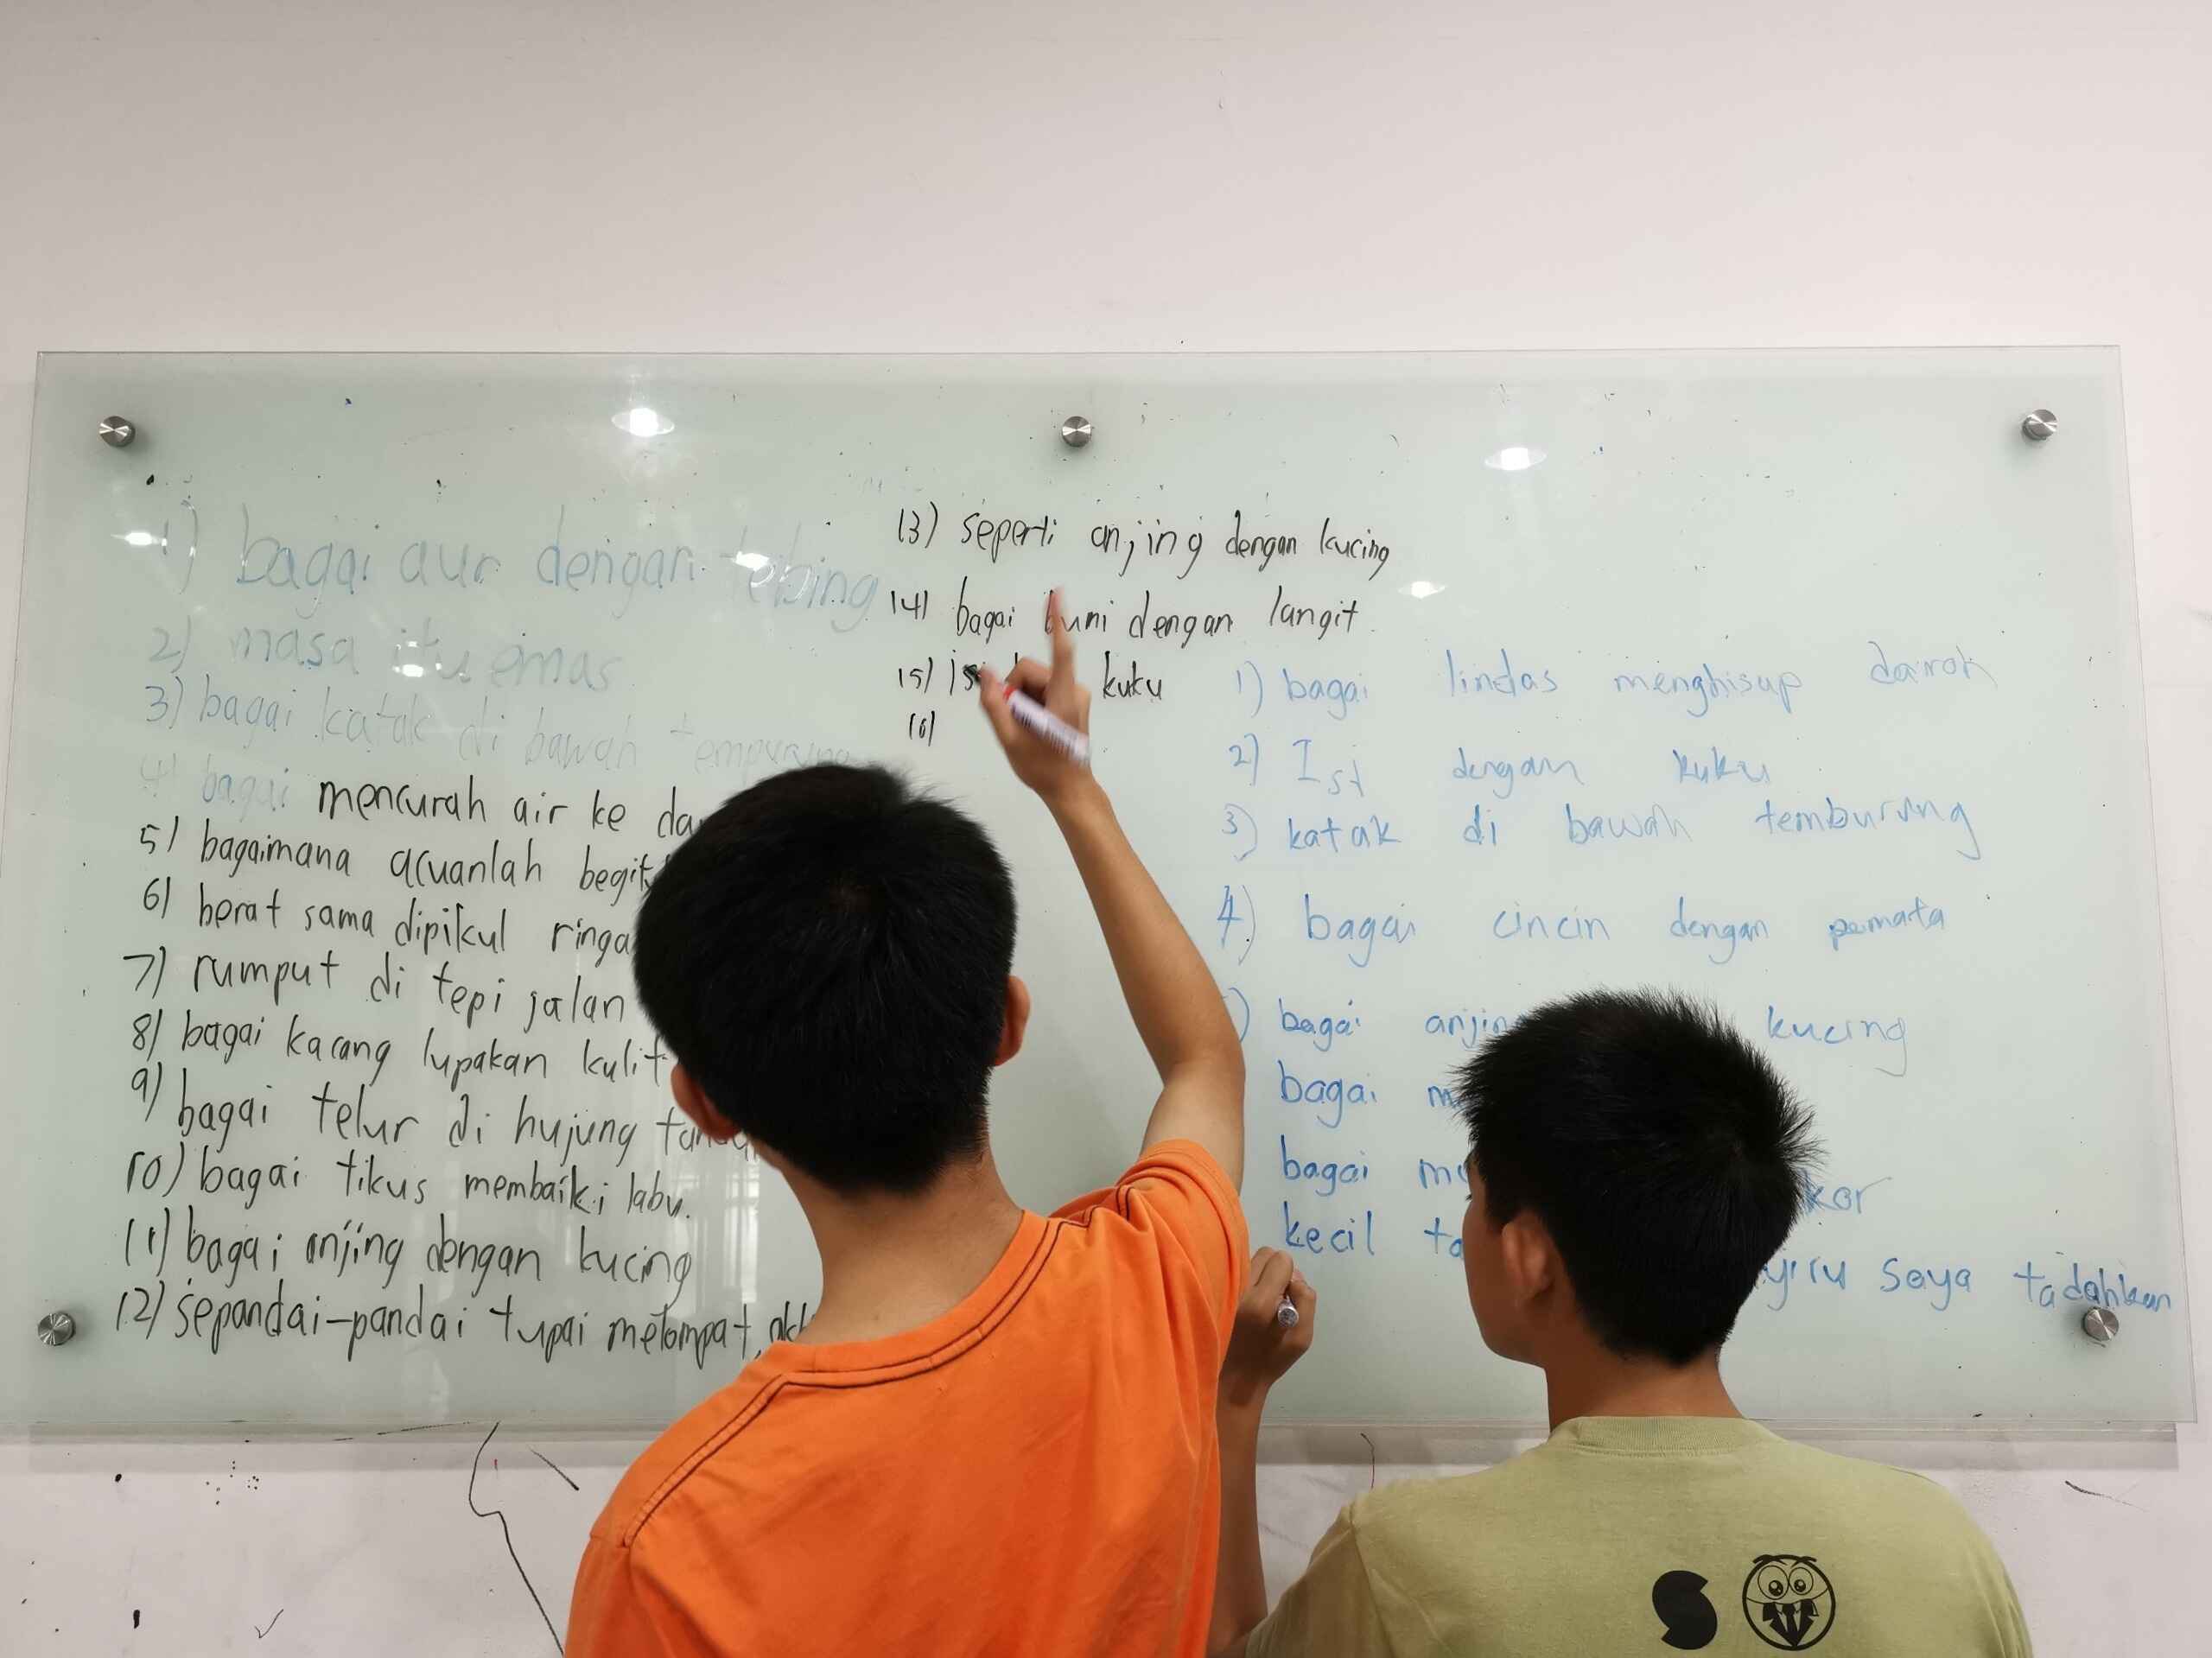 1) bagai aur dengan tebing
2) masa itu emas
3) bagai katak di bawah tempurung
4) bagai mencurah air ke
5) bagaimana acuanlah
6) berat sama dipikul
7) rumput di tepi jalan
8) bagai kacang lupakan kulit
9) bagai telur di hujung
10) bagai tikus membaiki labu.
11) bagai anjing dengan kucing
12) sepandai-pandai tupai melompat,
13) seperti anjing dengan kucing
14) bagai bumi dengan langit
15) kuku
16)
1) bagai lindas menghisup darah
2) Isi dengan kuku
3) katak di bawah temburung
4) bagai cincin dengan pemata
) bagai kucing
bagai
bagai
kecil saya tadahkan
S